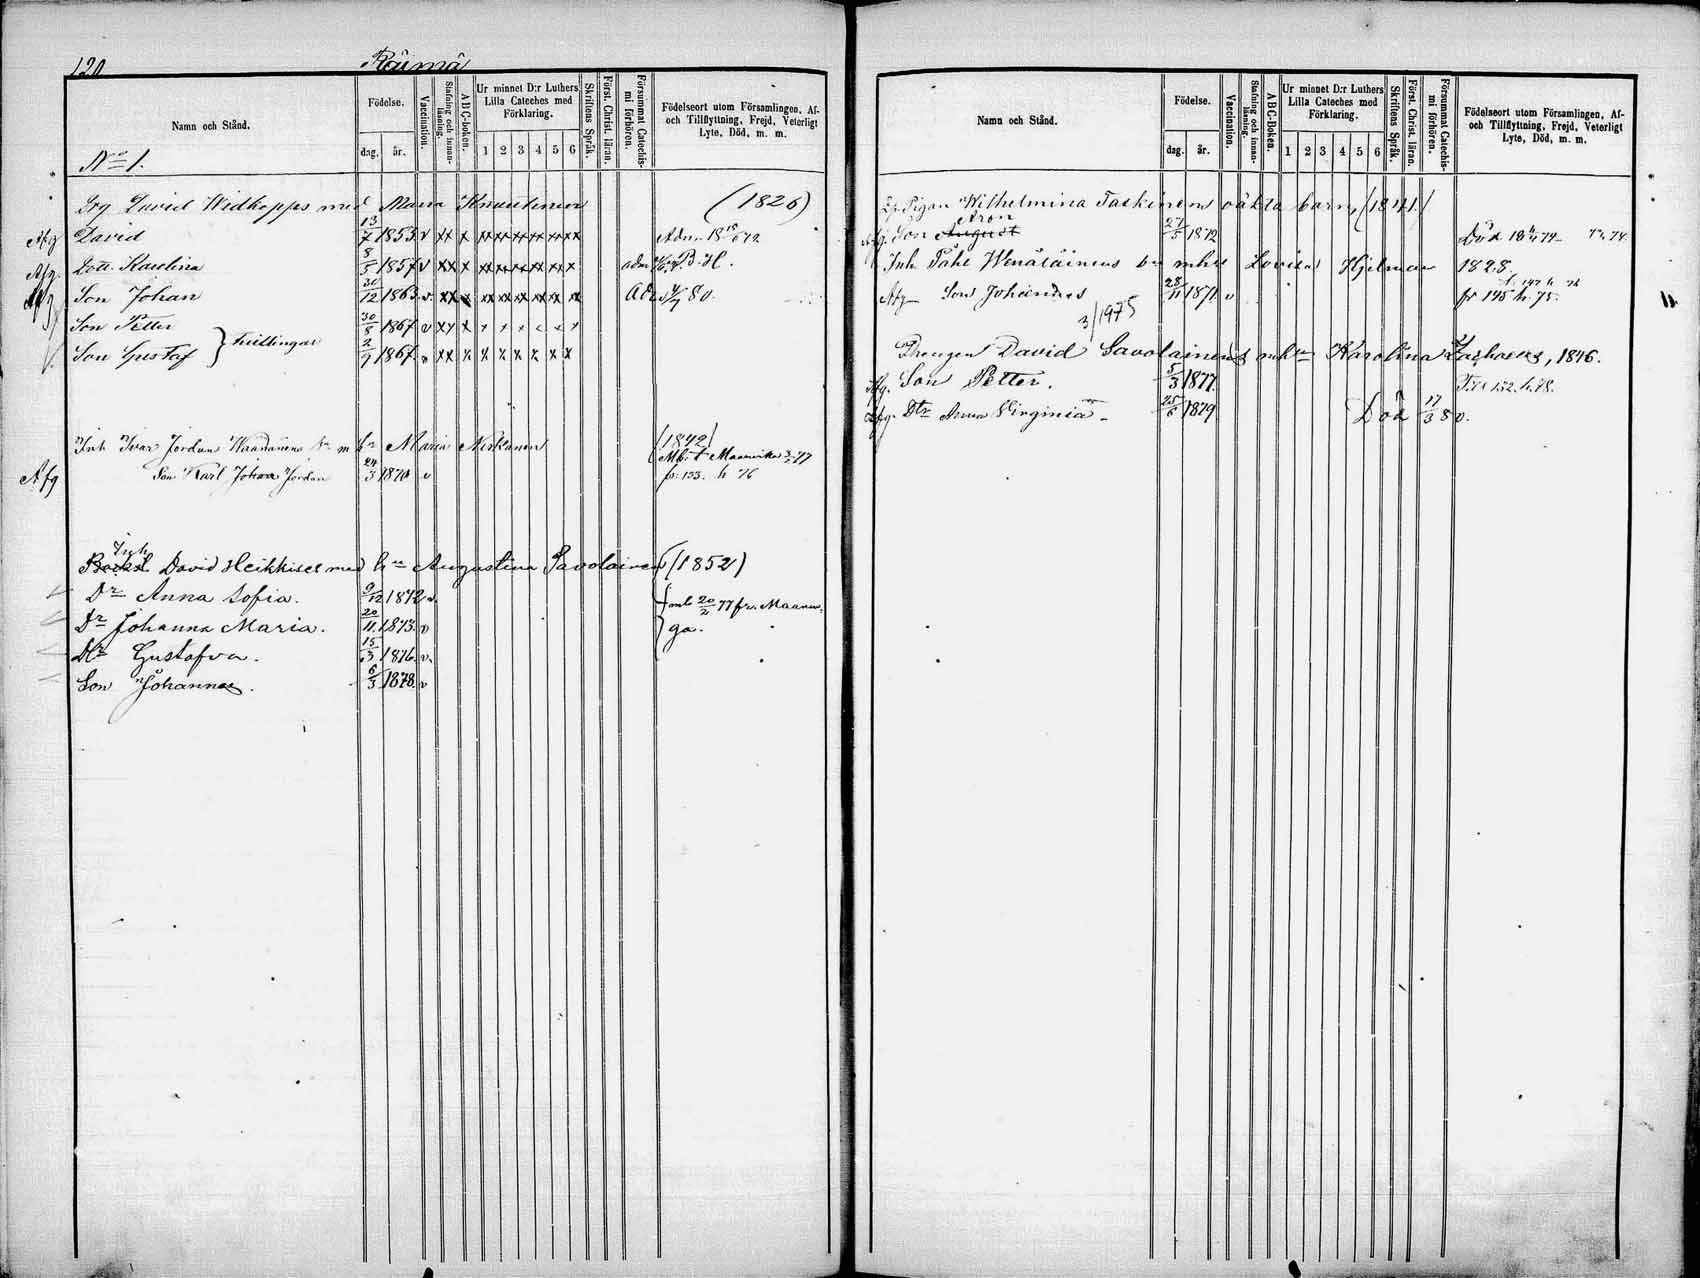 120 Räimä
Namn och Stånd.
Födelse.
dag. år.
Vaccination.
Stafning och innanläsning.
A B C-boken.
Ur minnet D:r Luthers Lilla Cateches med Förklaring.
1 2 3 4 5 6
Skriftens Språk.
Först. Christ. läran.
Försummat Catechismi förhören.
Födelseort utom Församlingen, Af- och Tillflyttning, Frejd, Veterligt Lyte, Död, m. m.
No 1.
Drg David Widkopps med Maria Knuutinen (1826)
Afg David 13/7 1853 v xx x xx xx xx xx xx xx
Afg. Dott Karolina 8/5 1857 v xx x
Son Johan 30/12 1863 v. xx x Adm 4/7 80.
Son Petter 30/8 1867 v xx x
Son Gustaf } tvillingar 2/9 1867 v xx x x x x x x x
Inh Ivar Jordan m hu Maria (1842)
Afg Son Karl Johan Jordan 24/3 1870 v fr. 133. h 76
Inh David Heikkises med hu Augustina Savolainen (1852)
Dr Anna Sofia. 9/12 1872 v.
Dr Johanna Maria. 20/11 1873. v } inb 20/2 77 fr. Maaninga.
Dtr Gustafva. 15/3 1876. v.
Son Johannes. 6/3 1878. v
Namn och Stånd.
Födelse.
dag. år.
Vaccination.
Stafning och innanläsning.
A B C-boken.
Ur minnet D:r Luthers Lilla Cateches med Förklaring.
1 2 3 4 5 6
Skriftens Språk.
Först. Christ. läran.
Försummat Catechismi förhören.
Födelseort utom Församlingen, Af- och Tillflyttning, Frejd, Veterligt Lyte, Död, m. m.
Pigan Wilhelmina Taskinens oäkta barn, (1841)
Aron
Afg. Son August 27/5 1872 Död
Inh Påhl Wenäläinens mhu Lovisa Hjelman 1828.
Afg Son Johannes 28/11 1871 v fr 145 h. 75.
3/1975
Drengen David Savolainens mhu Karolina, 1846.
Afg. Son Petter. 5/3 1877. Till 152. h. 78.
Afg. Dtr Anna Virginia 25/6 1879 Död 17/3 80.